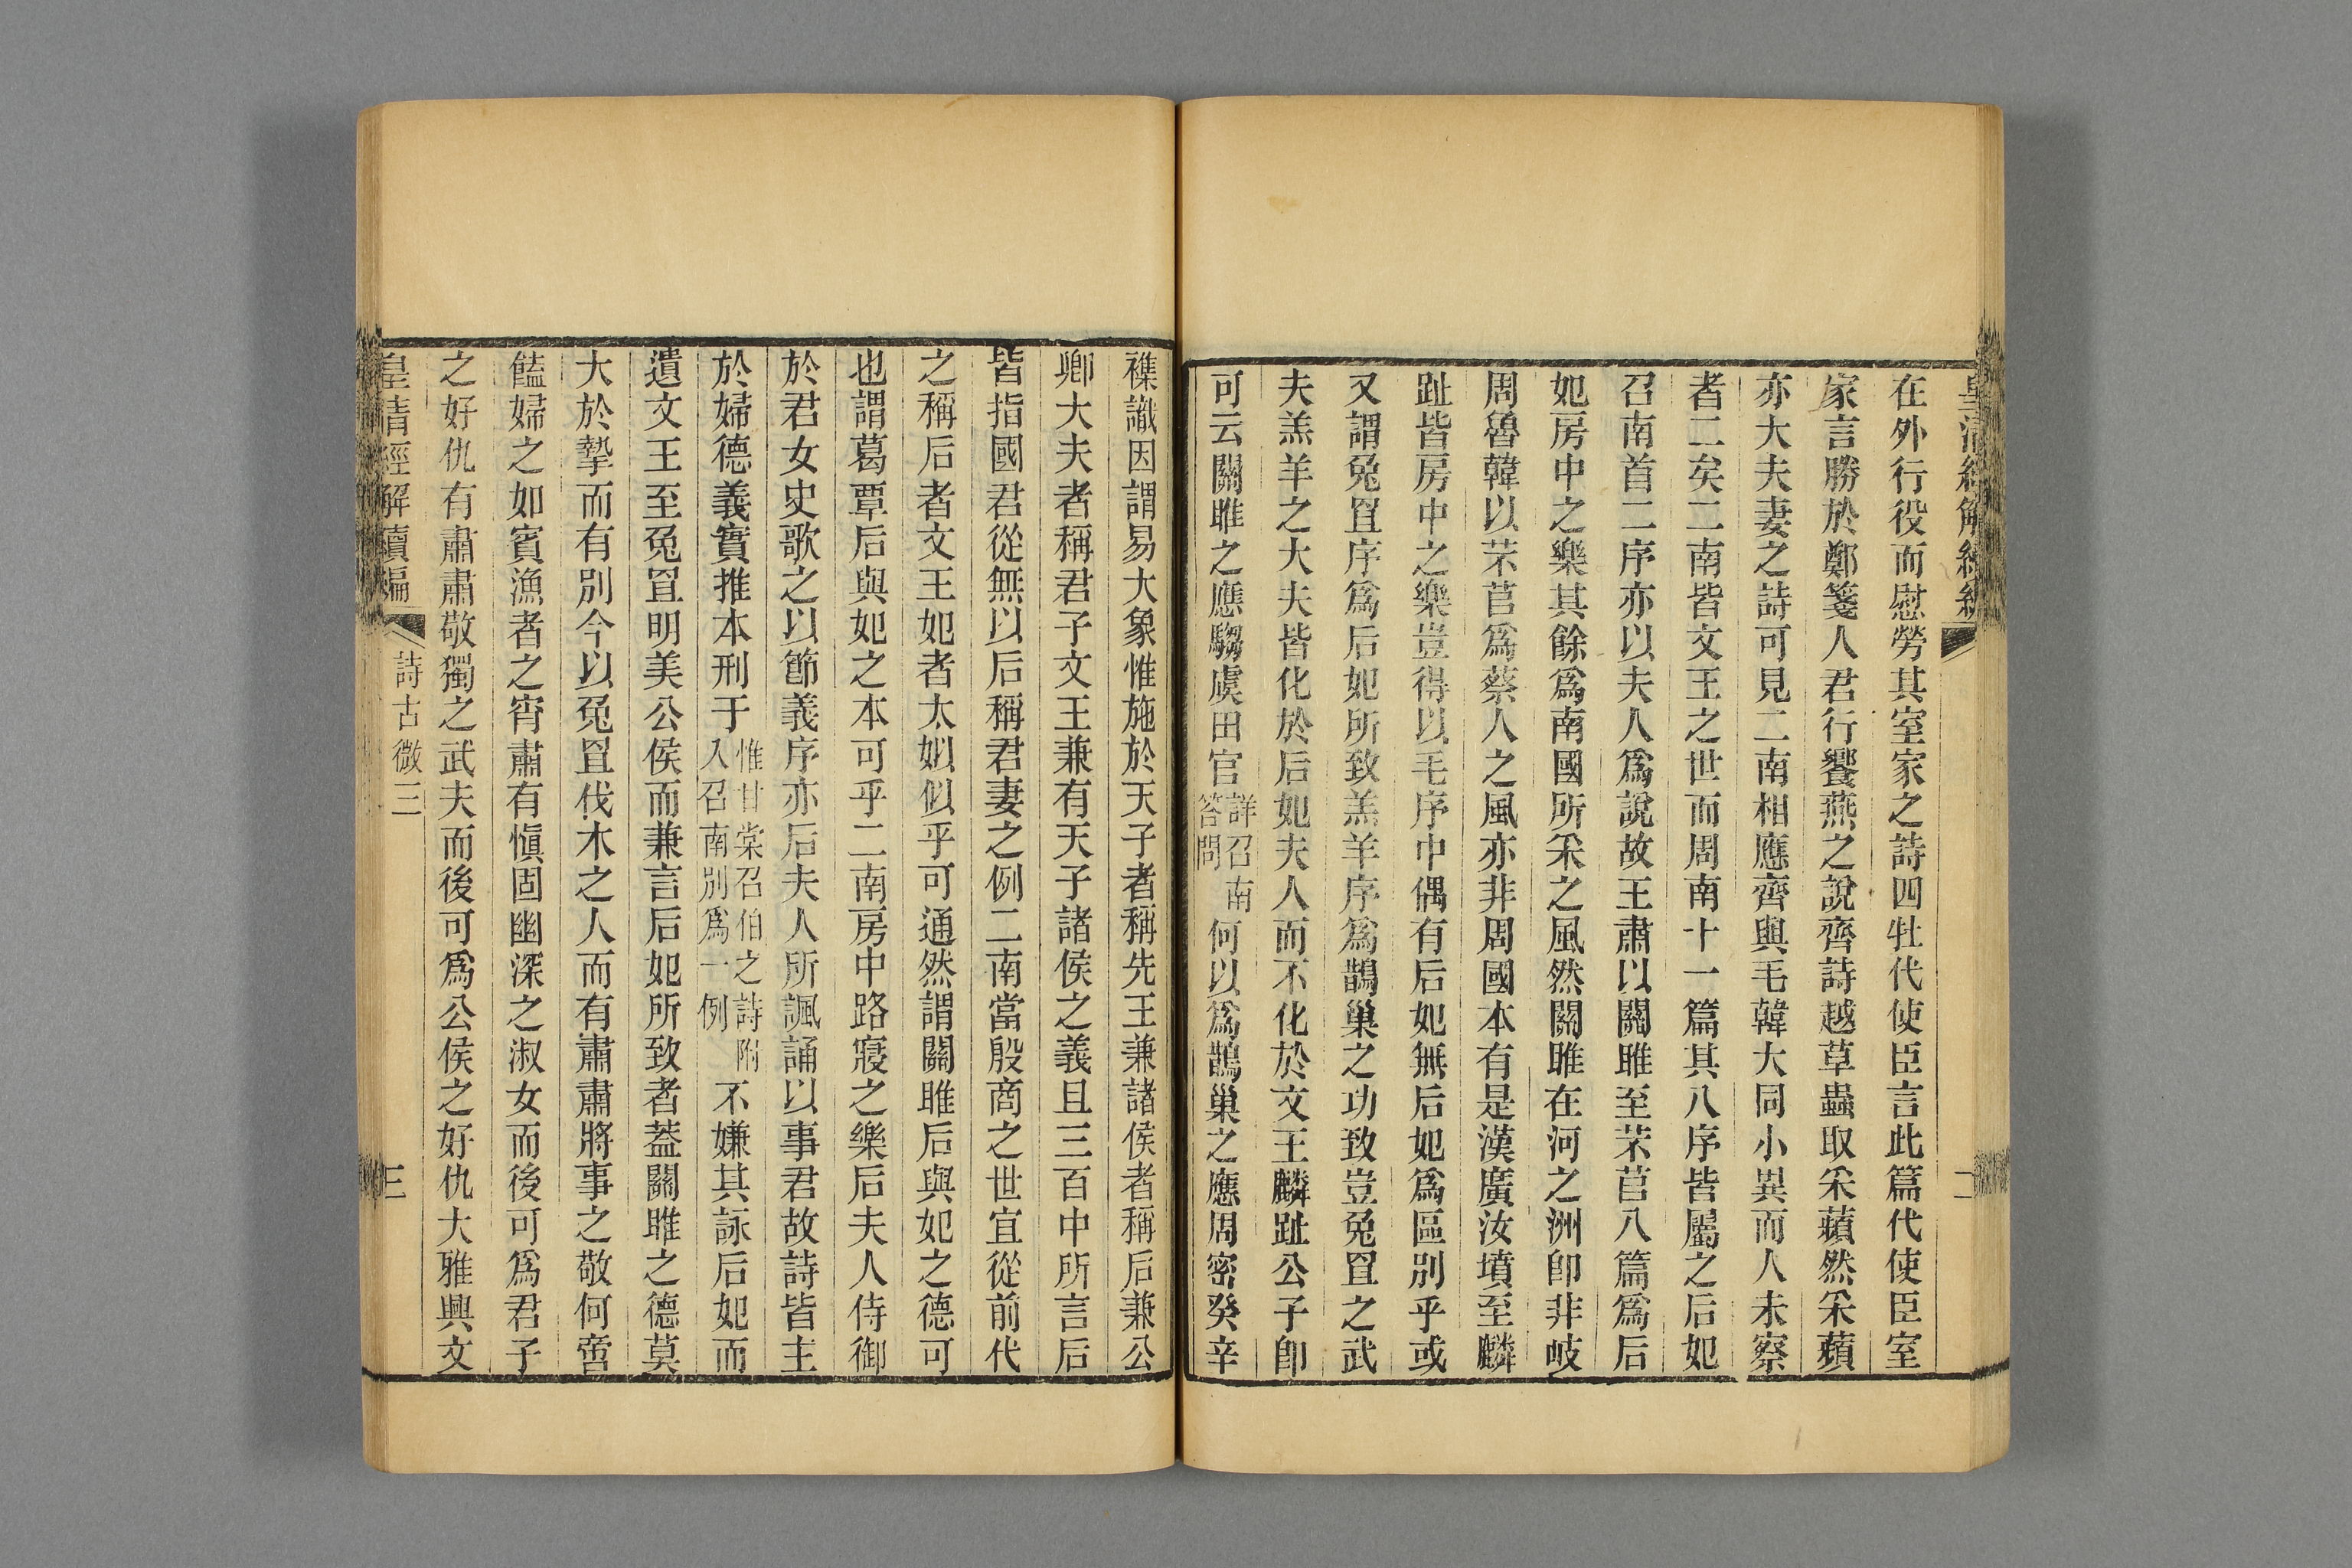 皇清經解續編
二
在外行役而慰勞其室家之詩四牡代使臣言此篇代使臣室
家言勝於鄭箋人君行饗燕之說齊詩越草蟲取采蘋然采蘋
亦大夫妻之詩可見二南相應齊與毛韓大同小異而人未察
者二矣二南皆文王之世而周南十一篇其八序皆屬之后妃
召南首二序亦以夫人爲說故王肅以關雎至芣苢八篇爲后
妃房中之樂其餘爲南國所采之風然關雎在河之洲卽非岐
周魯韓以芣苢爲蔡人之風亦非周國本有是漢廣汝墳至麟
趾皆房中之樂豈得以毛序中偶有后妃無后妃爲區別乎或
又謂兔罝序爲后妃所致羔羊序爲鵲巢之功致豈兔罝之武
夫羔羊之大夫皆化於后妃夫人而不化於文王麟趾公子卽
可云關雎之應騶虞田官詳召南答問何以爲鵲巢之應周密癸辛
襍識因謂易大象惟施於天子者稱先王兼諸侯者稱后兼公
卿大夫者稱君子文王兼有天子諸侯之義且三百中所言后
皆指國君從無以后稱君妻之例二南當殷商之世宜從前代
之稱后者文王妃者太姒似乎可通然謂關雎后與妃之德可
也謂葛覃后與妃之本可乎二南房中路寢之樂后夫人侍御
於君女史歌之以節義序亦后夫人所諷誦以事君故詩皆主
於婦德義實推本刑于惟甘棠召伯之詩附入召南別爲一例不嫌其詠后妃而
遺文王至兔罝明美公侯而兼言后妃所致者蓋關雎之德莫
大於摯而有別今以兔罝伐木之人而有肅肅將事之敬何啻
饁婦之如賓漁者之宵肅有愼固幽深之淑女而後可爲君子
之好仇有肅肅敬獨之武夫而後可爲公侯之好仇大雅興文
皇清經解續編
詩古微三
三